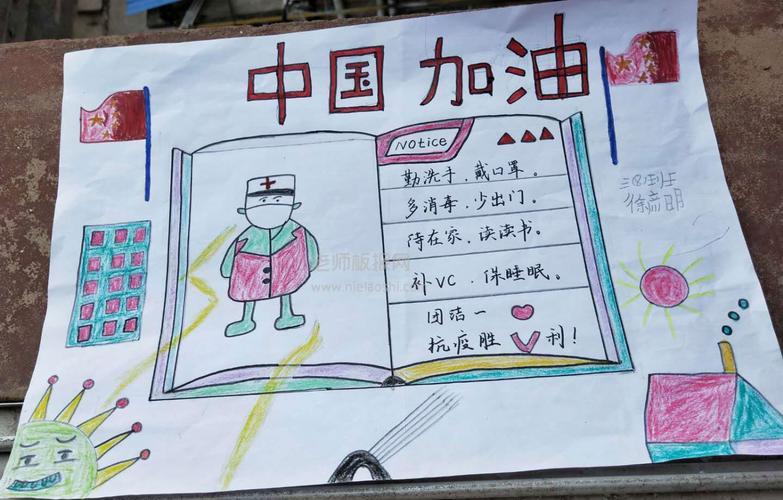 中国 加油
Notice
勤洗手、戴口罩。
多消毒、少出门。
待在家、读读书。
补VC、保睡眠。
团结一
抗疫胜利!
三(4)班王
徐彦明
老师板报网
www.nielaoshi.com